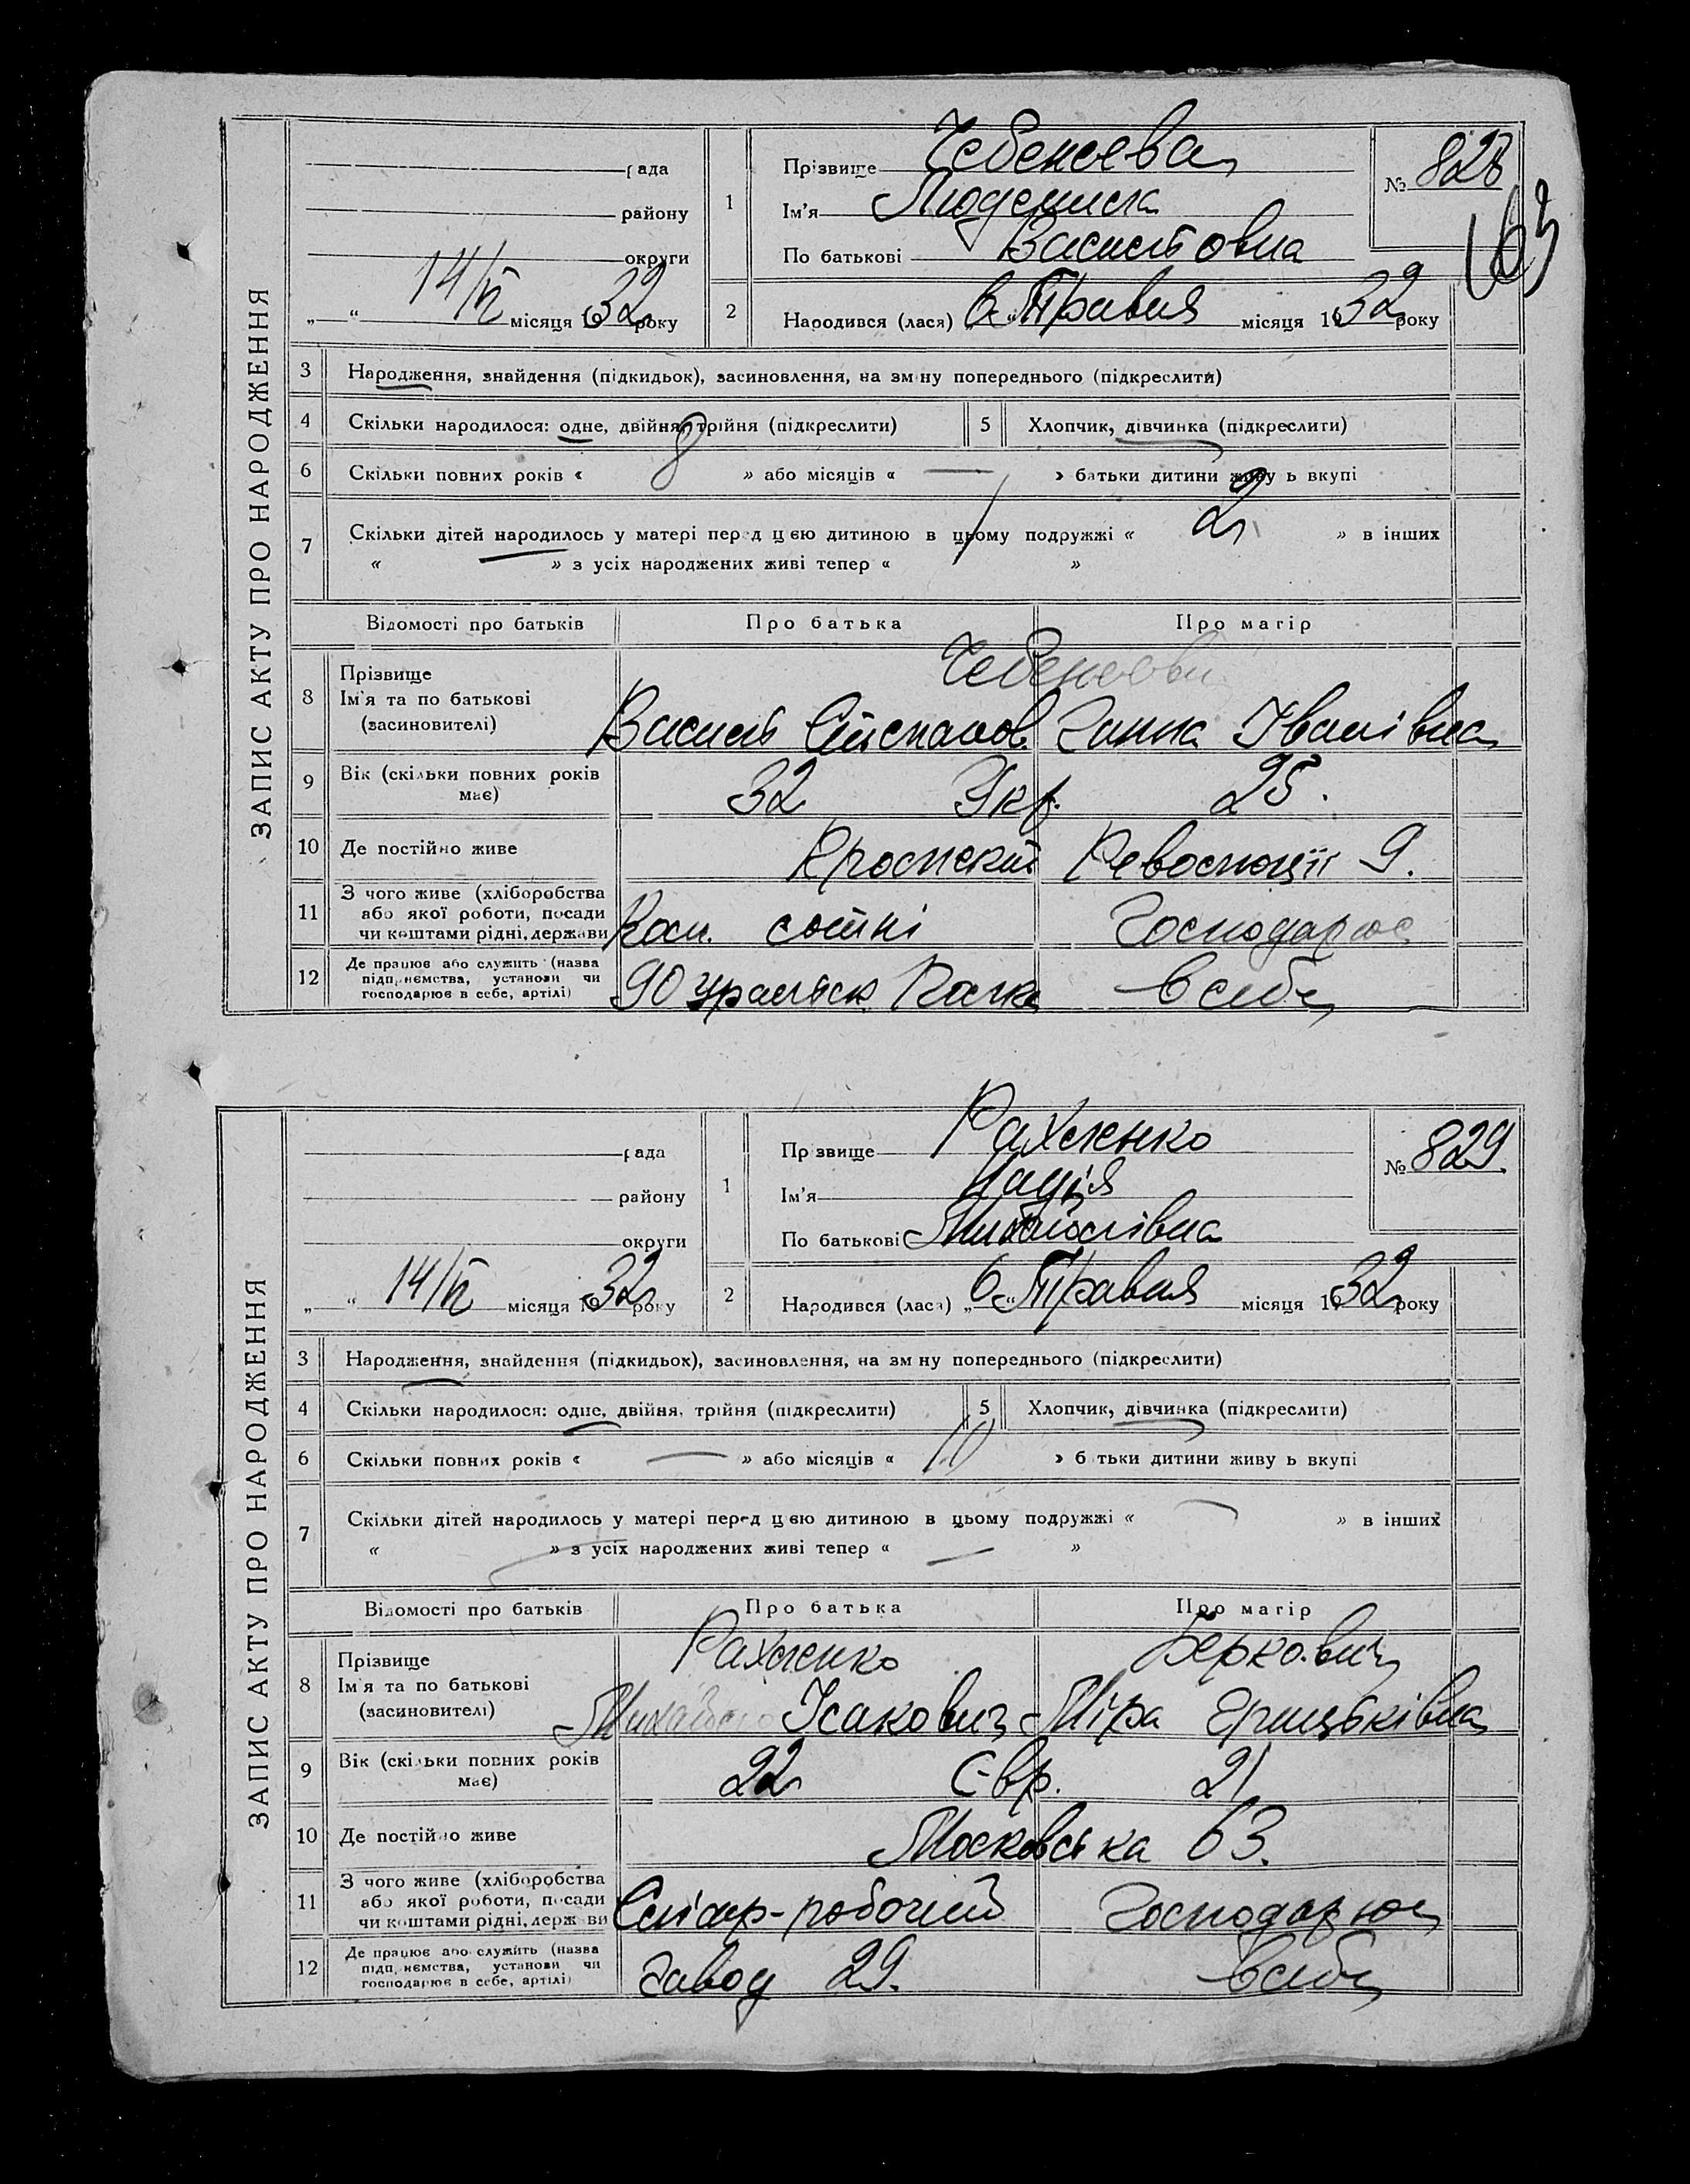 ЗАПИС АКТУ ПРО НАРОДЖЕННЯ
рада
району
округи
14/VI місяця 1932 року
1
Прізвище Чебенєева
Ім'я Людемила
По батькові Василовна
№ 828
163
2
Народився (лася) „6“ Травня місяця 1932 року
3 Народження, знайдення (підкидьок), засиновлення, на зміну попереднього (підкреслити)
4 Скільки народилося: одне, двійня, трійня (підкреслити)
5 Хлопчик, дівчинка (підкреслити)
6 Скільки повних років « 8 » або місяців « — » батьки дитини живуть вкупі
7 Скільки дітей народилось у матері перед цією дитиною в цьому подружжі « 2 » в інших
« — » з усіх народжених живі тепер « 1 »
Відомості про батьків Про батька Про матір
8 Прізвище
Ім'я та по батькові
(засновителі)
Василь Степанов. Ганна Іванівна
9 Вік (скільки повних років має) 32 Укр. 25.
10 Де постійно живе Проспект Революції 9.
11 З чого живе (хліборобства
або якої роботи, посади
чи коштами рідні, держави
Ком. сотні Господарює
12 Де працює або служить (назва
підприємства, установи чи
господарює в себе, артілі)
90 Уральск. Полка в себе
ЗАПИС АКТУ ПРО НАРОДЖЕННЯ
рада
району
округи
14/VI місяця 1932 року
1
Прізвище Рахленко
Ім'я Надія
По батькові Михайлівна
№ 829
2
Народився (лася) „6“ Травня місяця 1932 року
3 Народження, знайдення (підкидьох), засиновлення, на зміну попереднього (підкреслити)
4 Скільки народилося: одне, двійня, трійня (підкреслити)
5 Хлопчик, дівчинка (підкреслити)
6 Скільки повних років « — » або місяців « 10 » батьки дитини живуть вкупі
7 Скільки дітей народилось у матері перед цією дитиною в цьому подружжі « — » в інших
« — » з усіх народжених живі тепер « — »
Відомості про батьків Про батька Про матір
8 Прізвище
Ім'я та по батькові
(засиновителі)
Рахленко Беркович
Михайло Ісакович Міра Грицьківна
9 Вік (скільки повних років має) 22 Євр. 21
10 Де постійно живе Московська 63.
11 З чого живе (хліборобства
або якої роботи, посади
чи коштами рідні, держави
Слісар-робочий Господарює
12 Де працює або служить (назва
підприємства, установи чи
господарює в себе, артілі)
Завод 29. в себе